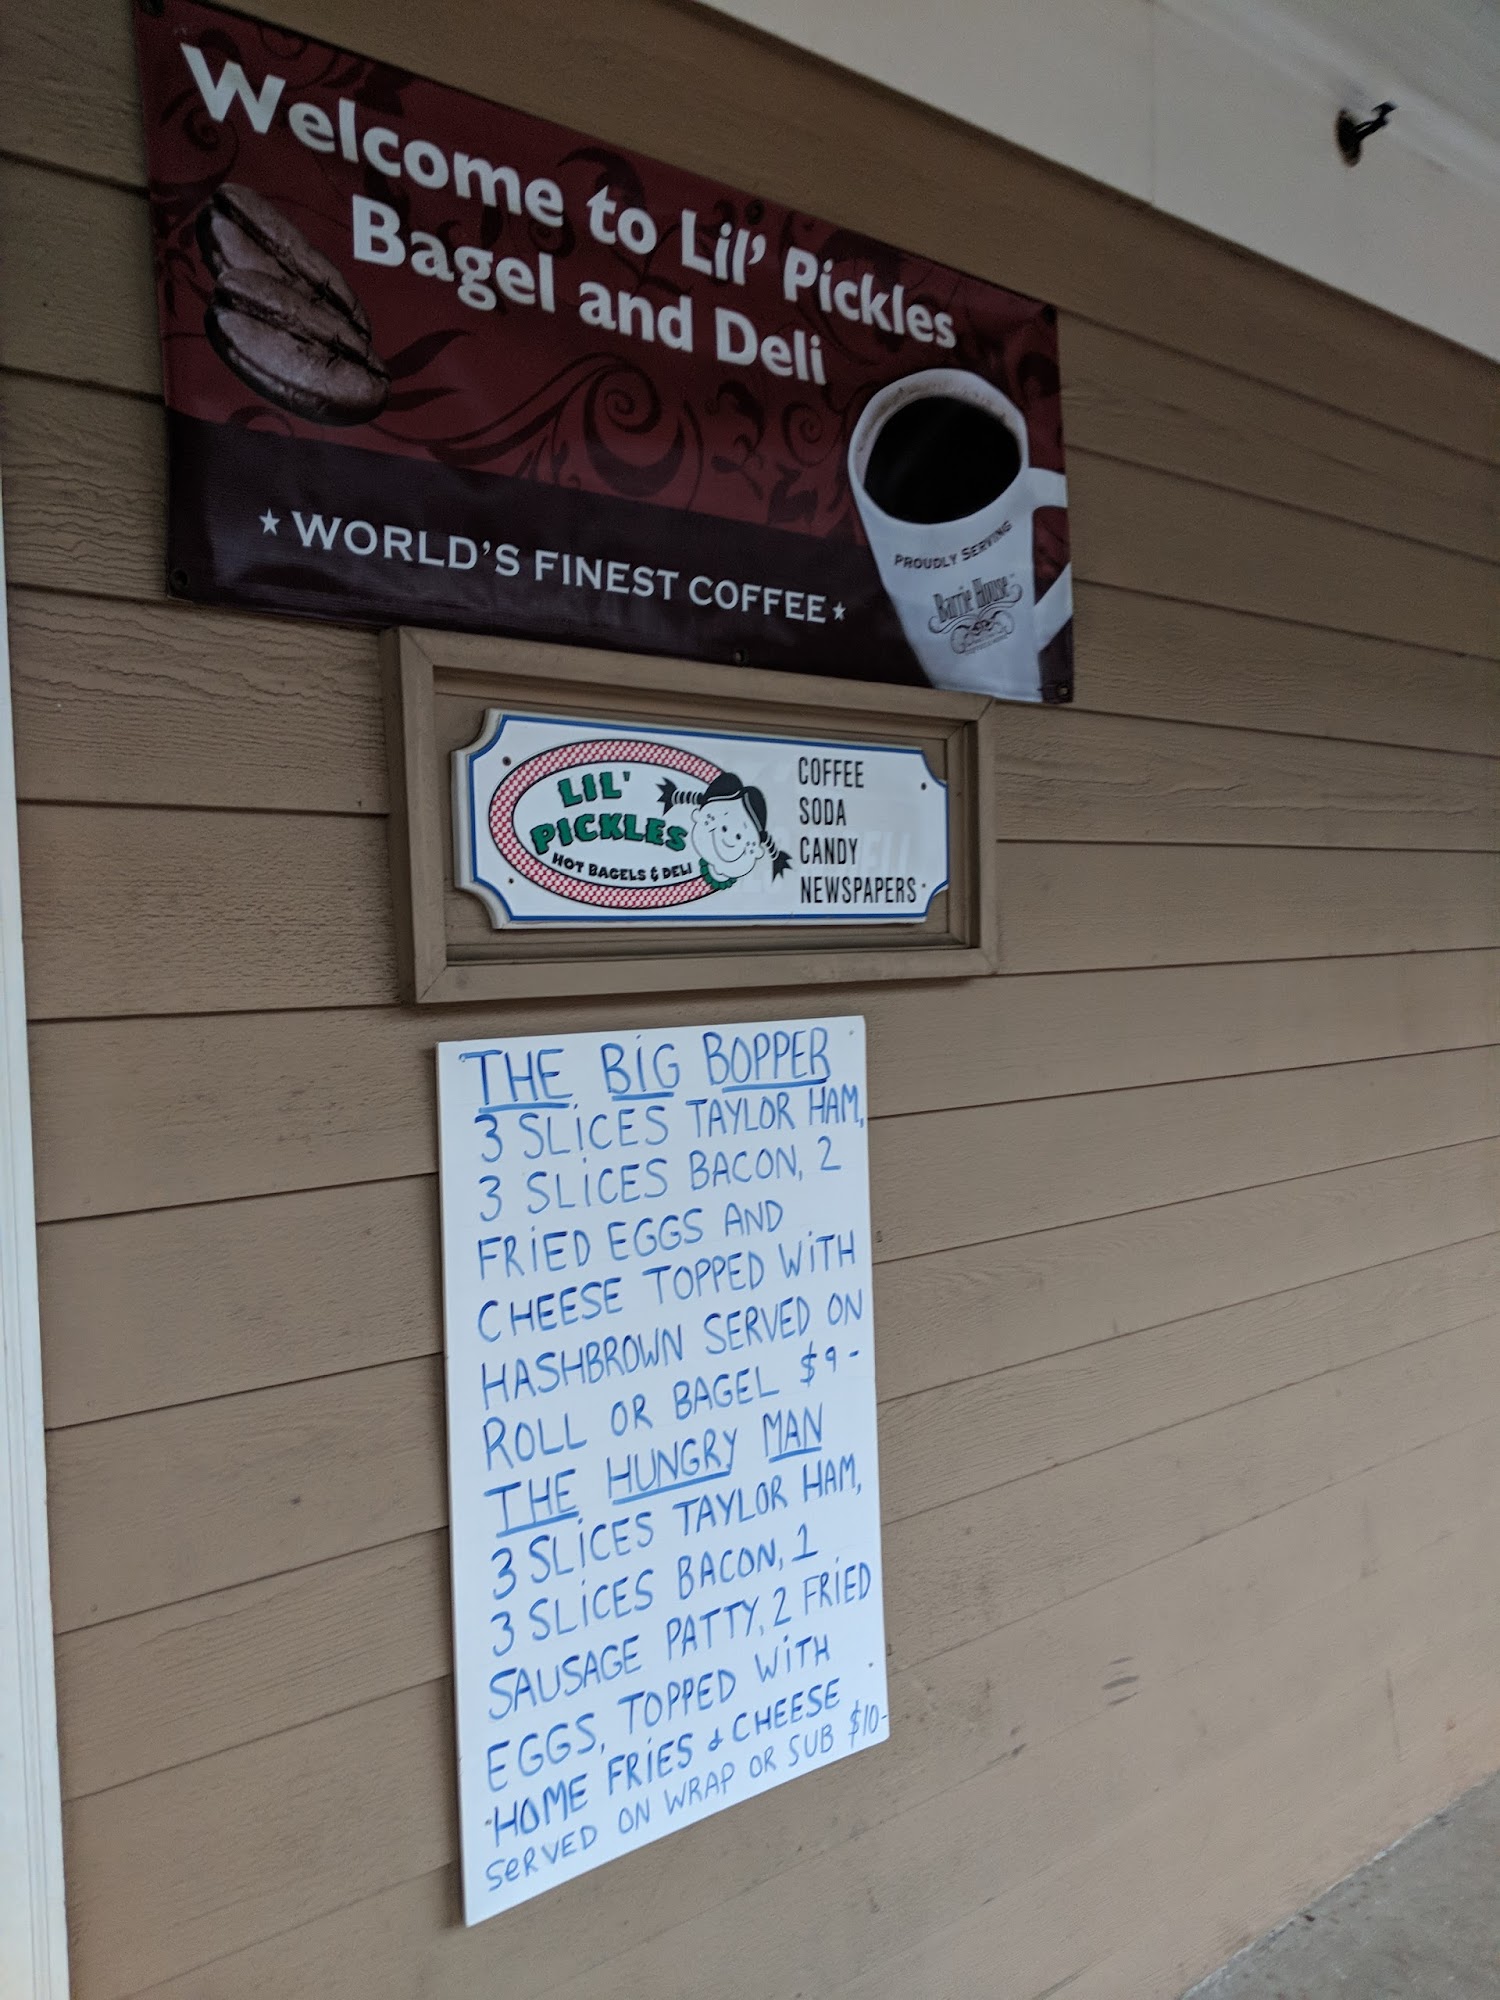 Welcome to Lil' Pickles
Bagel and Deli
★ WORLD'S FINEST COFFEE ★
PROUDLY SERVING
Barrie House
LIL'
PICKLES
HOT BAGELS & DELI
COFFEE
SODA
CANDY
NEWSPAPERS
THE BIG BOPPER
3 SLICES TAYLOR HAM,
3 SLICES BACON, 2
FRIED EGGS AND
CHEESE TOPPED WITH
HASHBROWN SERVED ON
ROLL OR BAGEL $9-
THE HUNGRY MAN
3 SLICES TAYLOR HAM,
3 SLICES BACON, 1
SAUSAGE PATTY, 2 FRIED
EGGS, TOPPED WITH
HOME FRIES & CHEESE
SERVED ON WRAP OR SUB $10-